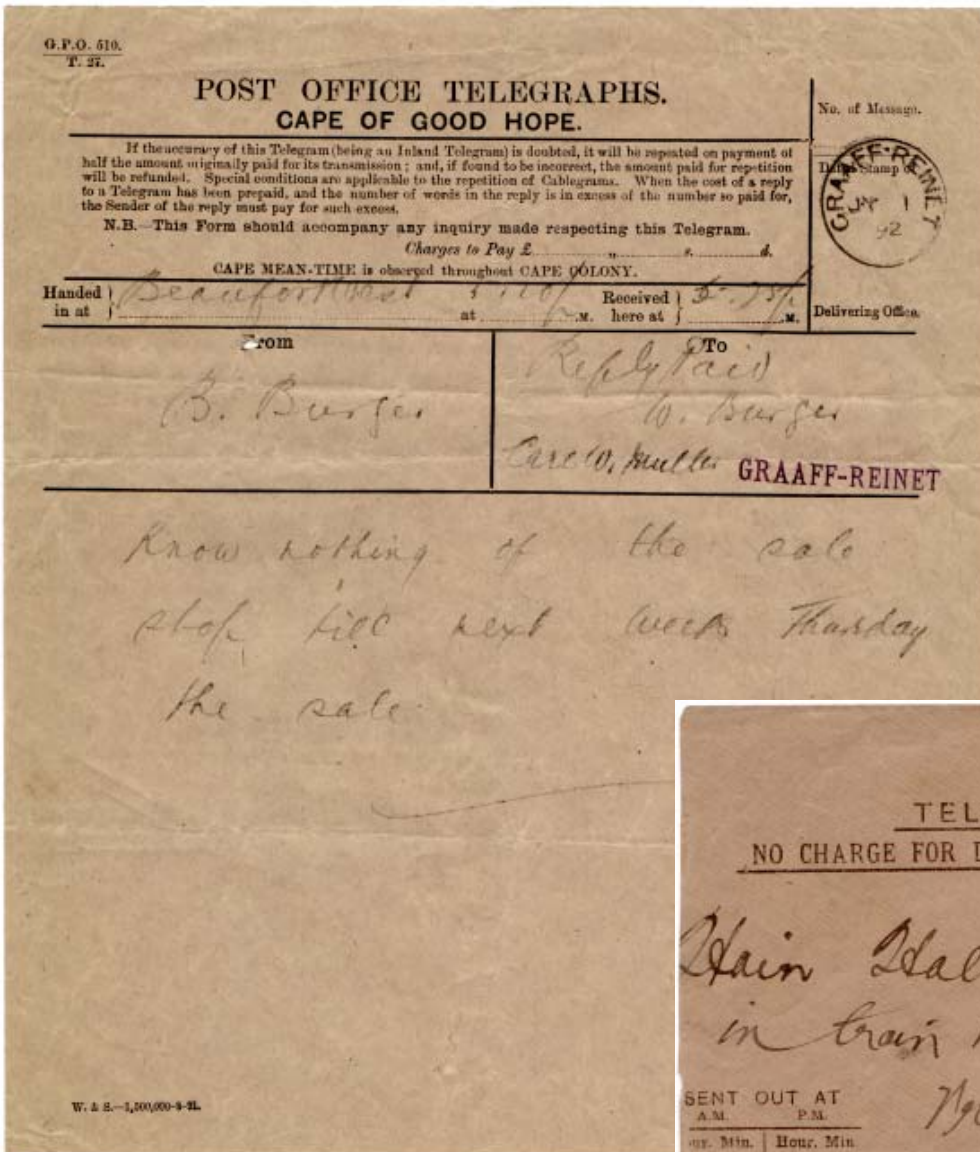 G.P.O. 510.
T. 27.
POST OFFICE TELEGRAPHS.
CAPE OF GOOD HOPE.
If the accuracy of this Telegram (being an Inland Telegram) is doubted, it will be repeated on payment of
half the amount originally paid for its transmission; and, if found to be incorrect, the amount paid for repetition
will be refunded. Special conditions are applicable to the repetition of Cablegrams. When the cost of a reply
to a Telegram has been prepaid, and the number of words in the reply is in excess of the number so paid for,
the Sender of the reply must pay for such excess.
N.B.—This Form should accompany any inquiry made respecting this Telegram.
Charges to Pay £ „ s. d.
CAPE MEAN-TIME is observed throughout CAPE COLONY.
Handed in at } Beaufort West at M. Received here at } M.
No. of Message.
Date Stamp of
GRAAFF-REINET
1
92
Delivering Office.
From
B. Burger
To
Reply Paid
W. Burger
Care W. Muller GRAAFF-REINET
Know nothing of the sale
stop till next week Thursday
the sale
W. & S.—1,500,000-8-91.
TEL
NO CHARGE FOR
in train
SENT OUT AT
A.M. P.M.
Min. | Hour. Min